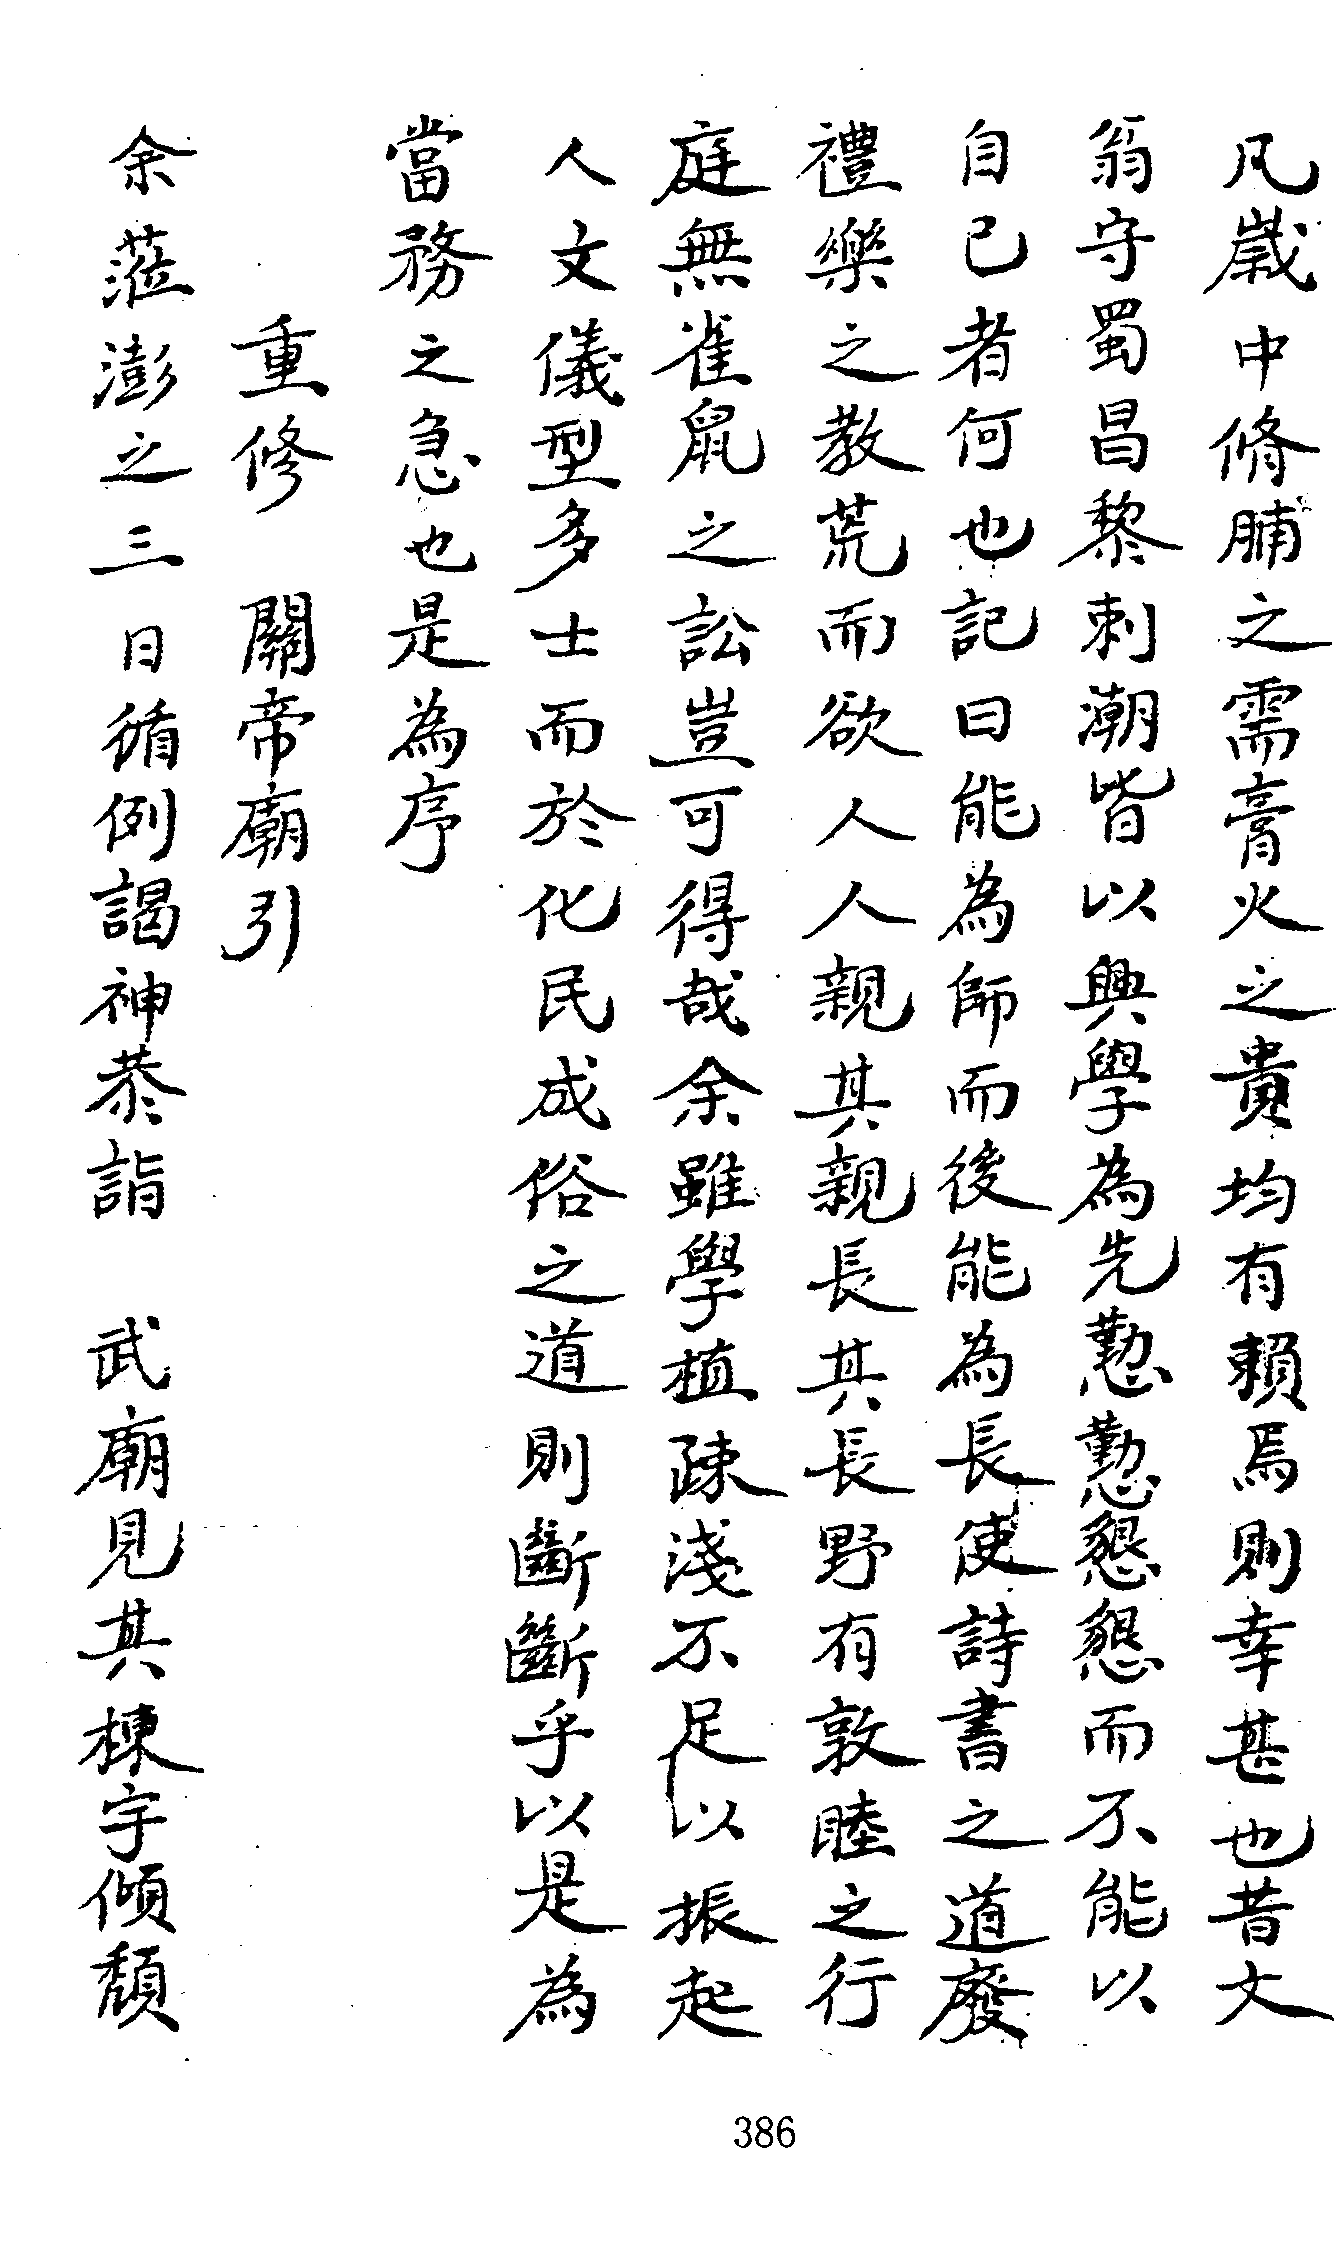 凡歲中脩脯之需膏火之貴均有賴焉則幸甚也昔文
翁守蜀昌黎刺潮皆以興學為先懃懃懇懇而不能以
自已者何也記曰能為師而後能為長使詩書之道廢
禮樂之教荒而欲人人親其親長其長野有敦睦之行
庭無雀鼠之訟豈可得哉余雖學植疎淺不足以振起
人文儀型多士而於化民成俗之道則斷斷乎以是為
當務之急也是為序
重修 關帝廟引
余蒞澎之三日循例謁神恭詣 武廟見其棟宇傾頹
386